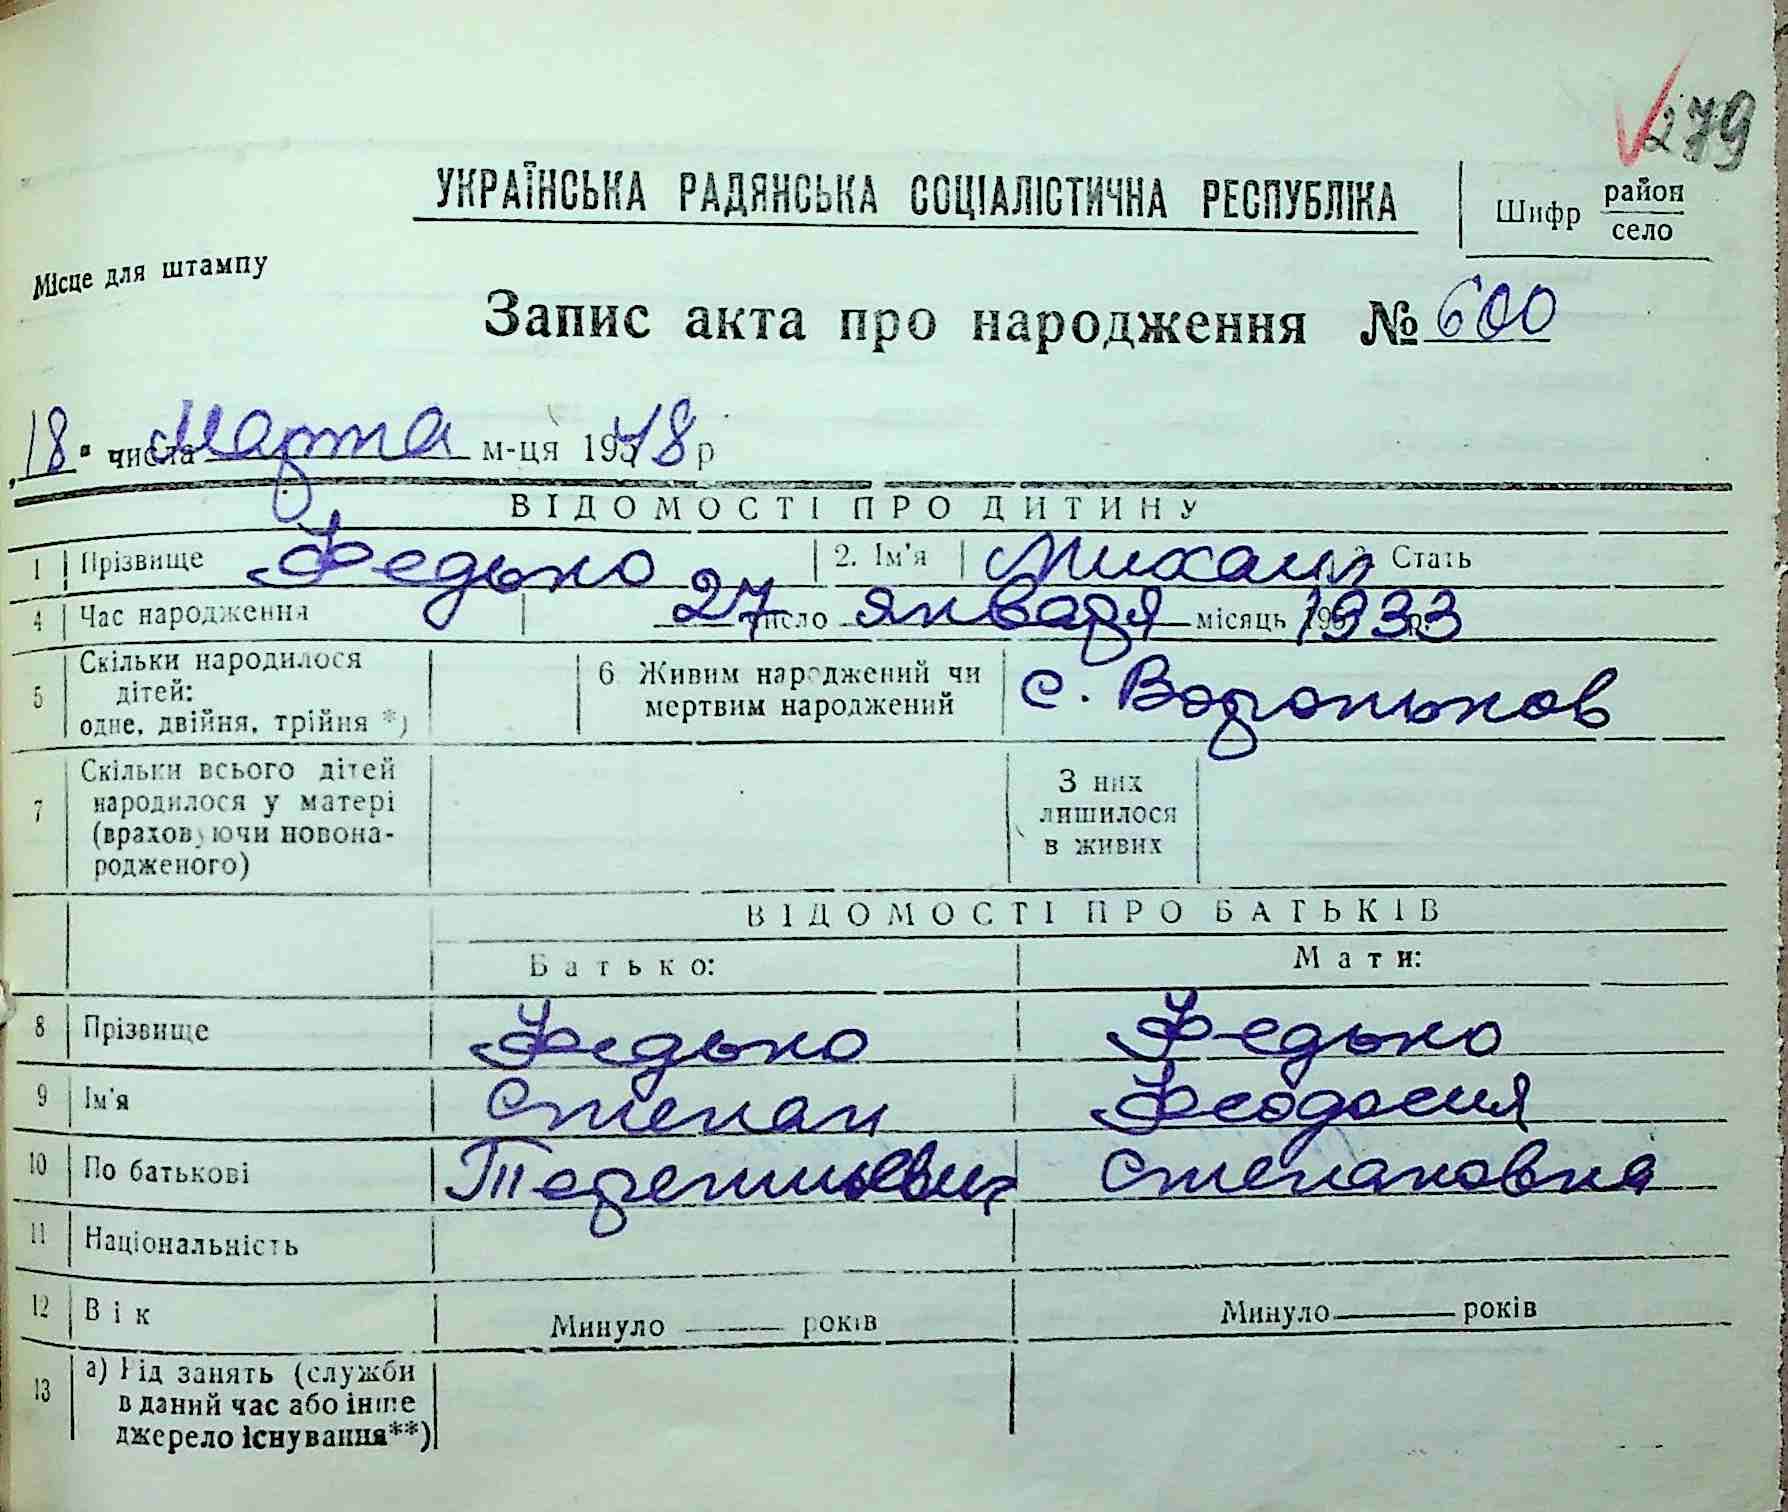 279
УКРАЇНСЬКА РАДЯНСЬКА СОЦІАЛІСТИЧНА РЕСПУБЛІКА
Шифр район
село
Місце для штампу
Запис акта про народження № 600
„18" числа Марта м-ця 1948 р
ВІДОМОСТІ ПРО ДИТИНУ
1 Прізвище Федько 2. Ім'я Михаил 3. Стать
4 Час народження 27 число января місяць 1933 р.
5 Скільки народилося дітей: одне, двійня, трійня *)
6 Живим народжений чи мертвим народжений с. Вороньков
7 Скільки всього дітей народилося у матері (враховуючи новонародженого)
З них лишилося в живих
ВІДОМОСТІ ПРО БАТЬКІВ
Батько: Мати:
8 Прізвище Федько Федько
9 Ім'я Степан Феодосия
10 По батькові Терентьевич Степановна
11 Національність
12 Вік Минуло ——— років Минуло ——— років
13 а) Рід занять (служби в даний час або інше джерело існування**)